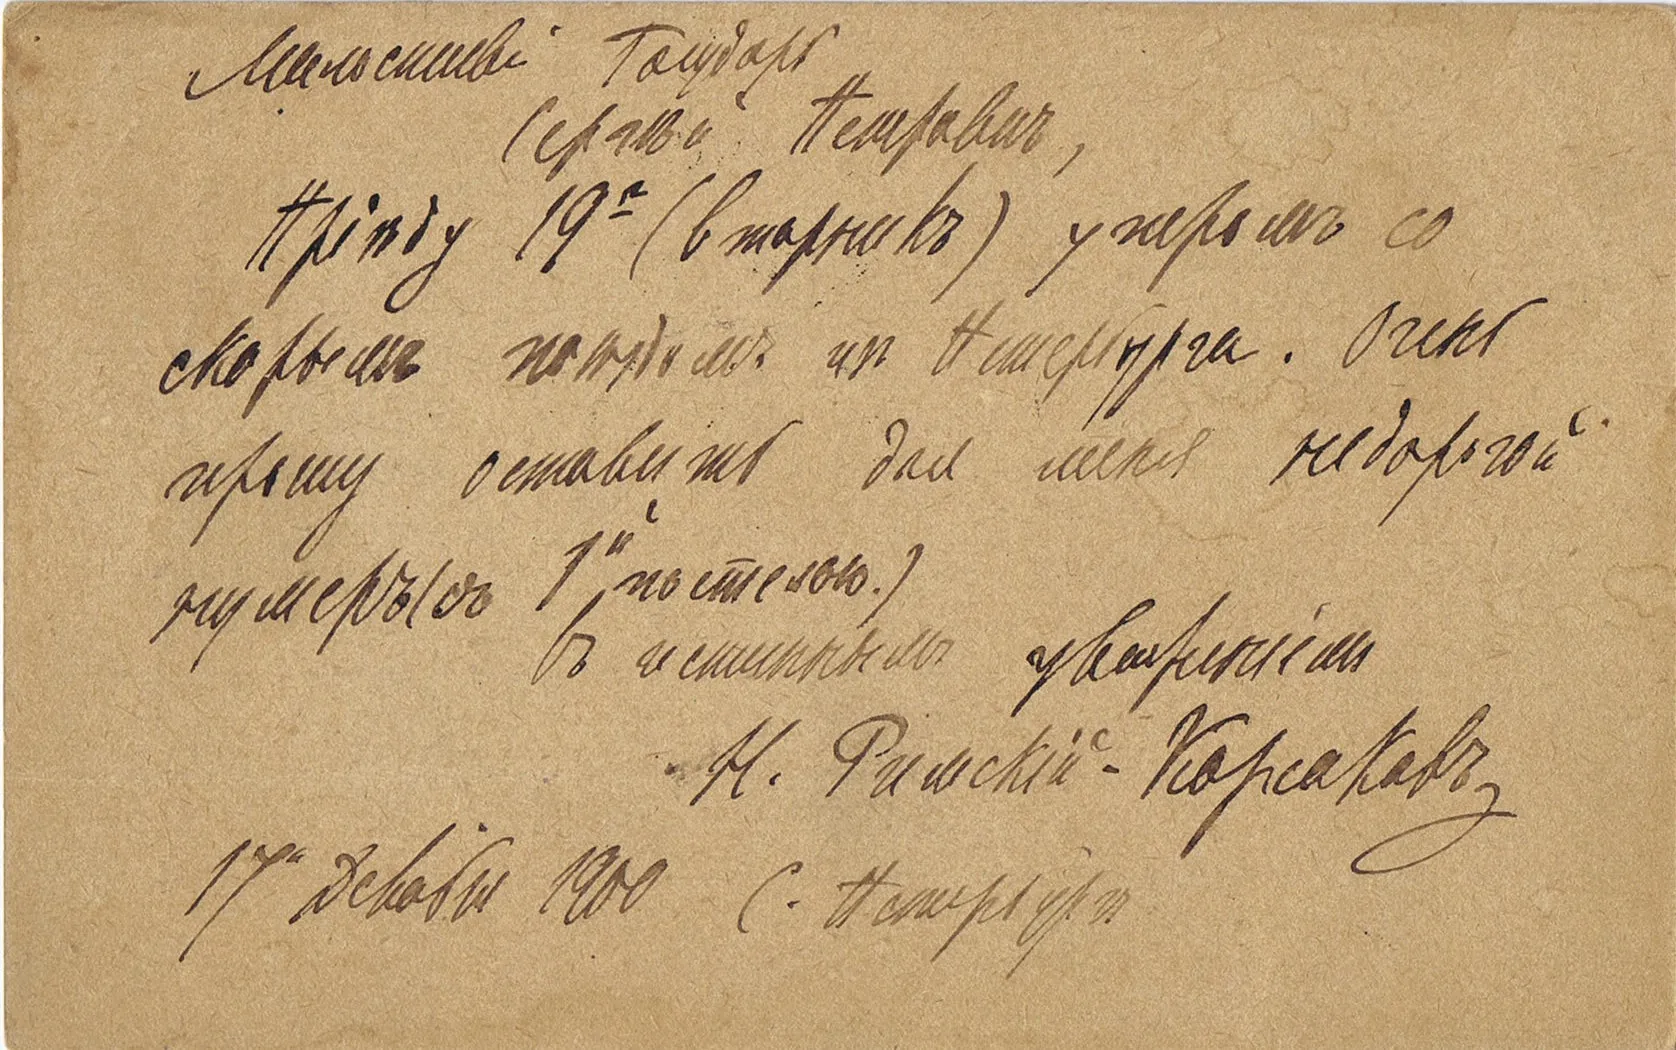 Милостивѣ Государь
Сергѣй Петровичъ,
Пріѣду 19го (вторникъ) утромъ со
скорымъ поѣздомъ изъ Петербурга. Очень
прошу оставить для меня недорогой
нумеръ (съ 1й постелью.)
Съ истиннымъ уваженіемъ
Н. Римскій-Корсаковъ
17го Декабря 1900 С. Петербургъ